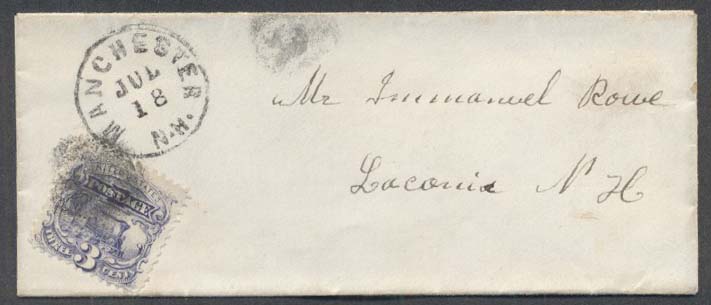 MANCHESTER N.H.
JUL
18
Mr Immanuel Rowe
Laconia N H
UNITED STATES
POSTAGE
THREE 3 CENTS